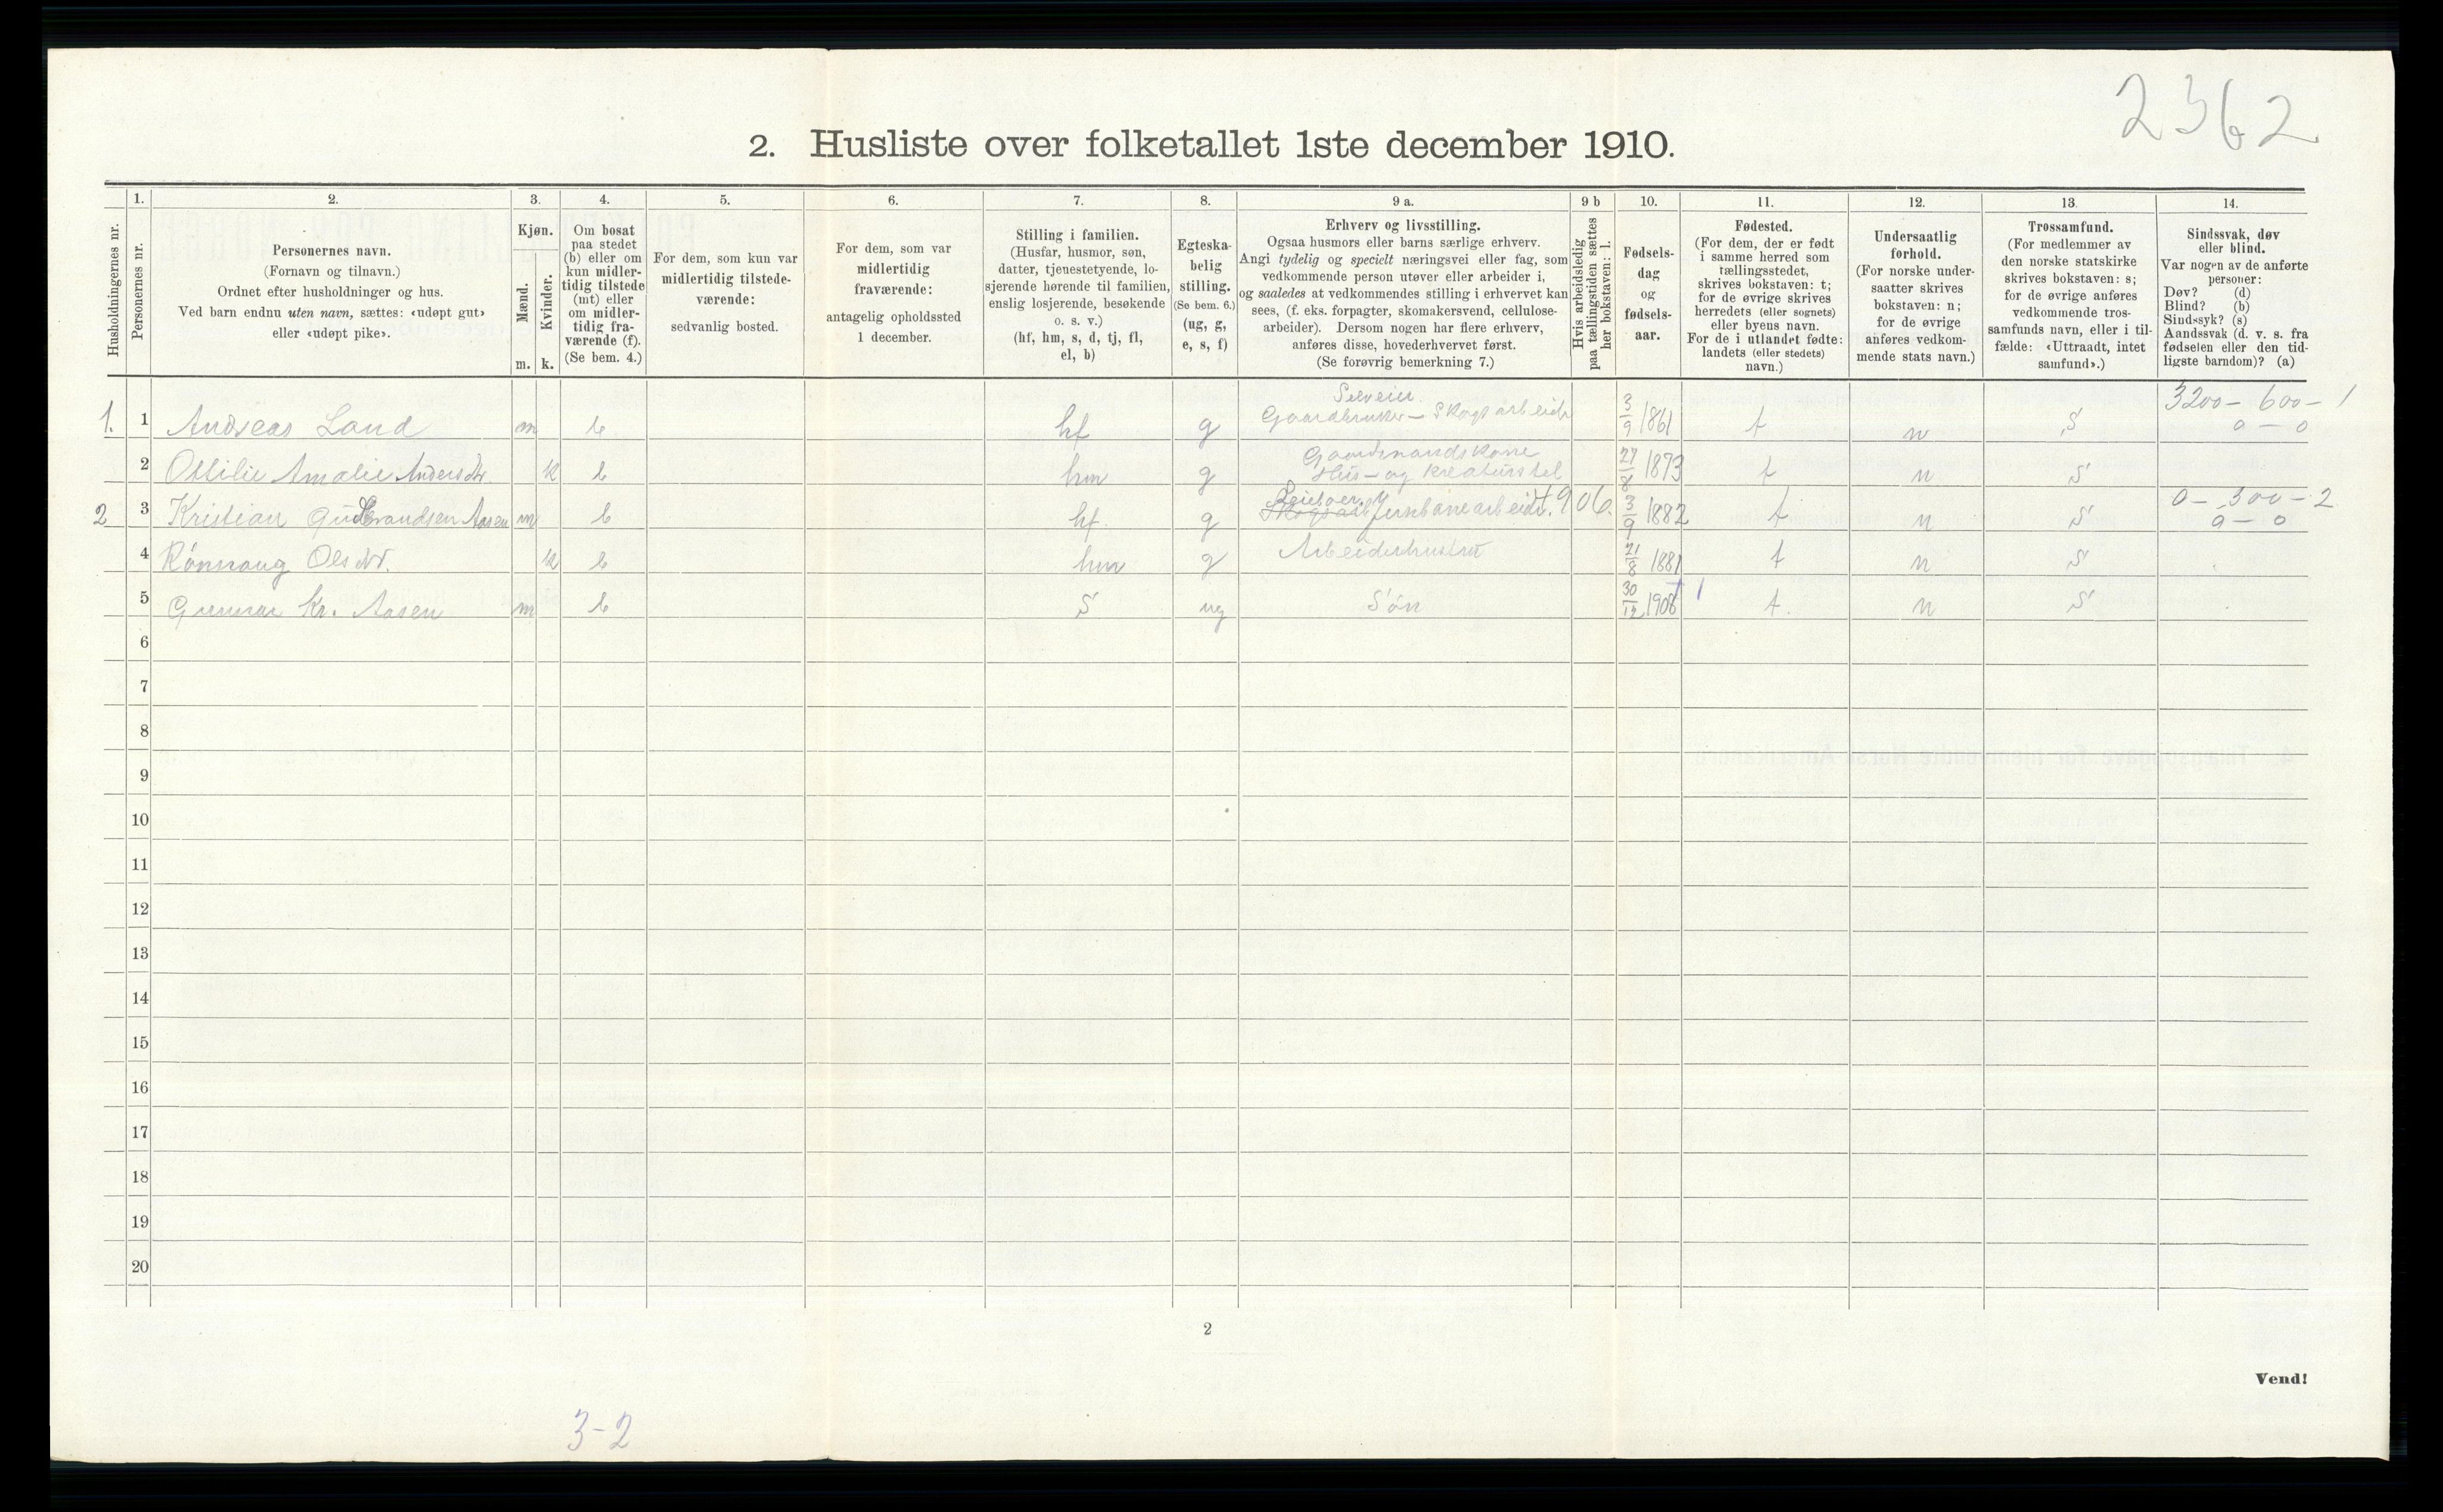 2362
2. Husliste over folketallet 1ste december 1910.
Husholdningernes nr.
1.
Personernes nr.
2.
Personernes navn.
(Fornavn og tilnavn.)
Ordnet efter husholdninger og hus.
Ved barn endnu uten navn, sættes: «udøpt gut»
eller «udøpt pike».
3.
Kjøn.
Mænd.
Kvinder.
m. k.
4.
Om bosat
paa stedet
(b) eller om
kun midler-
tidig tilstede
(mt) eller
om midler-
tidig fra-
værende (f).
(Se bem. 4.)
5.
For dem, som kun var
midlertidig tilstede-
værende:
sedvanlig bosted.
6.
For dem, som var
midlertidig
fraværende:
antagelig opholdssted
1 december.
7.
Stilling i familien.
(Husfar, husmor, søn,
datter, tjenestetyende, lo-
sjerende hørende til familien,
enslig losjerende, besøkende
o. s. v.)
(hf, hm, s, d, tj, fl,
el, b)
8.
Egteska-
belig
stilling.
(Se bem. 6.)
(ug, g,
e, s, f)
9 a.
Erhverv og livsstilling.
Ogsaa husmors eller barns særlige erhverv.
Angi tydelig og specielt næringsvei eller fag, som
vedkommende person utøver eller arbeider i,
og saaledes at vedkommendes stilling i erhvervet kan
sees, (f. eks. forpagter, skomakersvend, cellulose-
arbeider). Dersom nogen har flere erhverv,
anføres disse, hovederhvervet først.
(Se forøvrig bemerkning 7.)
9 b
Hvis arbeidsledig
paa tællingstiden sættes
her bokstaven: l.
10.
Fødsels-
dag
og
fødsels-
aar.
11.
Fødested.
(For dem, der er født
i samme herred som
tællingsstedet,
skrives bokstaven: t;
for de øvrige skrives
herredets (eller sognets)
eller byens navn.
For de i utlandet fødte:
landets (eller stedets)
navn.)
12.
Undersaatlig
forhold.
(For norske under-
saatter skrives
bokstaven: n;
for de øvrige
anføres vedkom-
mende stats navn.)
13.
Trossamfund.
(For medlemmer av
den norske statskirke
skrives bokstaven: s;
for de øvrige anføres
vedkommende tros-
samfunds navn, eller i til-
fælde: «Uttraadt, intet
samfund».)
14.
Sindssvak, døv
eller blind.
Var nogen av de anførte
personer:
Døv? (d)
Blind? (b)
Sindssyk? (s)
Aandssvak (d. v. s. fra
fødselen eller den tid-
ligste barndom)? (a)
Selveier 3200 – 600 – 1
1. 1 Andreas Land m b hf g Gaardbruker – Skogsarbeider 3/9 1861 t n S 0 – 0
Gaardmandskone
2 Ottilie Amalie Andersdtr. k b hm g Hus – og Kreaturstel 27/8 1873 t n S
0 – 300 – 2
2 3 Kristian Gudbrandsen Aasen m b hf. g Jernbanearbeider. 906. 3/9 1882 t n S 0 – 0
4 Rönnaug Olsdtr. k b hm g Arbeiderhustru 21/8 1881 t n S
5 Gunnar Kr. Aasen m b S ug Søn 30/12 1908 t. n S
6
7
8
9
10
11
12
13
14
15
16
17
18
19
20
2
Vend!
3-2